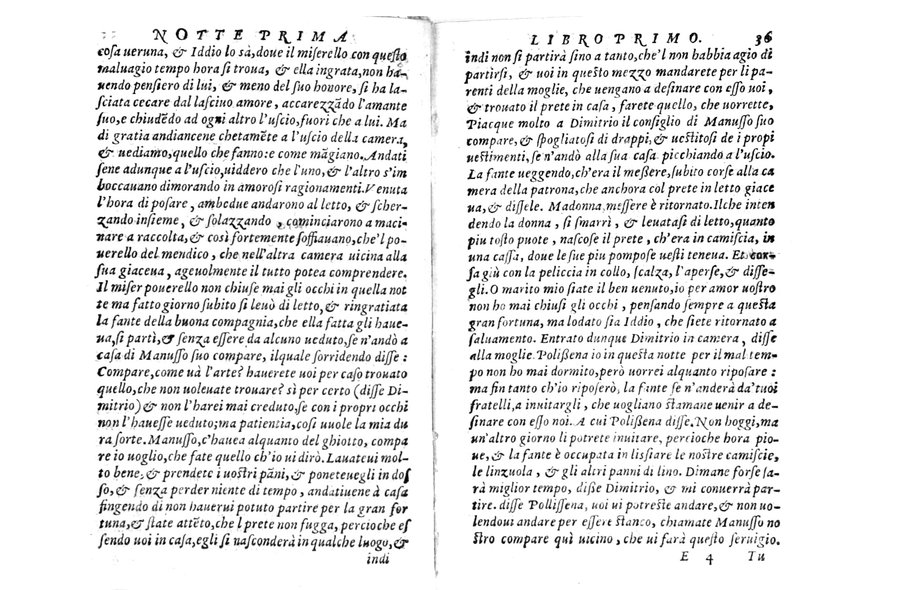 NOTTE PRIMA
cosa ueruna, & Iddio lo sà, doue il misero con questo
maluagio tempo hora si troua, & ella ingrata, non ha-
uendo pensiero di lui, & meno del suo honore, si ha la-
sciata cecare dal lasciuo amore, accarezzãdo l'amante
suo, e chiudẽdo ad ogni altro l'uscio, fuori che a lui. Ma
di gratia andiancene chetamẽte a l'uscio della camera,
& uediamo, quello che fanno: e come mãgiano. Andati
sene adunque a l'uscio, uiddero che l'uno, & l'altro s'im
boccauano dimorando in amorosi ragionamenti. Venuta
l'hora di posare, ambedue andarono al letto, & scher-
zando insieme, & solazzando, cominciarono a maci-
nare a raccolta, & così fortemente soffiauano, che'l po-
uerello del mendico, che nell'altra camera uicina alla
sua giaceua, ageuolmente il tutto potea comprendere.
Il miser pouerello non chiuse mai gli occhi in quella not
te ma fatto giorno subito si leuò di letto, & ringratiata
la fante della buona compagnia, che ella fatta gli haue-
ua, si partì, & senza essere da alcuno ueduto, se n'andò a
casa di Manusso suo compare, ilquale sorridendo disse:
Compare, come uà l'arte? hauerete uoi per caso trouato
quello, che non uoleuate trouare? sì per certo (disse Di-
mitrio) & non l'harei mai creduto, se con i propri occhi
non l'hauesse ueduto; ma patientia, così uuole la mia du
ra sorte. Manusso, c'hauea alquanto del ghiotto, compa
re io uoglio, che fate quello ch'io ui dirò. Lauateui mol-
to bene, & prendete i uostri pãni, & poneteuegli in dos
so, & senza perder niente di tempo, andatiuene à casa
fingendo di non hauerui potuto partire per la gran for
tuna, & state attẽto, che'l prete non fugga, percioche es
sendo uoi in casa, egli si nasconderà in qualche luogo, &
indi
LIBRO PRIMO. 36
indi non si partirà sino a tanto, che'l non habbia agio di
partirsi, & uoi in questo mezzo mandarete per li pa-
renti della moglie, che uengano a desinare con esso uoi,
& trouato il prete in casa, farete quello, che uorrete.
Piacque molto a Dimitrio il consiglio di Manusso suo
compare, & spogliatosi di drappi, & uestitosi de i propi
uestimenti, se n'andò alla sua casa picchiando a l'uscio.
La fante ueggendo, ch'era il messere, subito corse alla ca
mera della patrona, che anchora col prete in letto giace
ua, & dissele. Madonna, messere è ritornato. Ilche inten
dendo la donna, si smarrì, & leuatasi di letto, quanto
piu tosto puote, nascose il prete, ch'era in camiscia, in
una cassa, doue le sue piu pompose uesti teneua. Et cor-
sa giù con la peliccia in collo, scalza, l'aperse, & disse-
gli. O marito mio siate il ben uenuto, io per amor uostro
non ho mai chiusi gli occhi, pensando sempre a questa
gran fortuna, ma lodato sia Iddio, che siete ritornato a
saluamento. Entrato dunque Dimitrio in camera, disse
alla moglie. Polissena io in questa notte per il mal tem-
po non ho mai dormito, però uorrei alquanto riposare:
ma fin tanto ch'io riposerò, la fante se n'anderà da'tuoi
fratelli, a inuitargli, che uogliano stamane uenir a de-
sinare con esso noi. A cui Polissena disse. Non hoggi, ma
un'altro giorno li potrete inuitare, percioche hora pio-
ue, & la fante è occupata in lissiare le nostre camiscie,
le linzuola, & gli altri panni di lino. Dimane forse sa-
rà miglior tempo, disse Dimitrio, & mi conuerrà par-
tire. disse Pollissena, uoi ui potreste andare, & non uo-
lendoui andare per essere stanco, chiamate Manusso no
stro compare quì uicino, che ui farà questo seruigio.
E 4 Tu